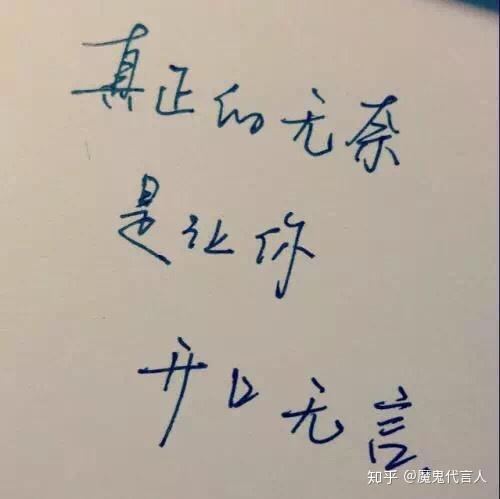 真正的无奈
是让你
开口无言
知乎 @魔鬼代言人